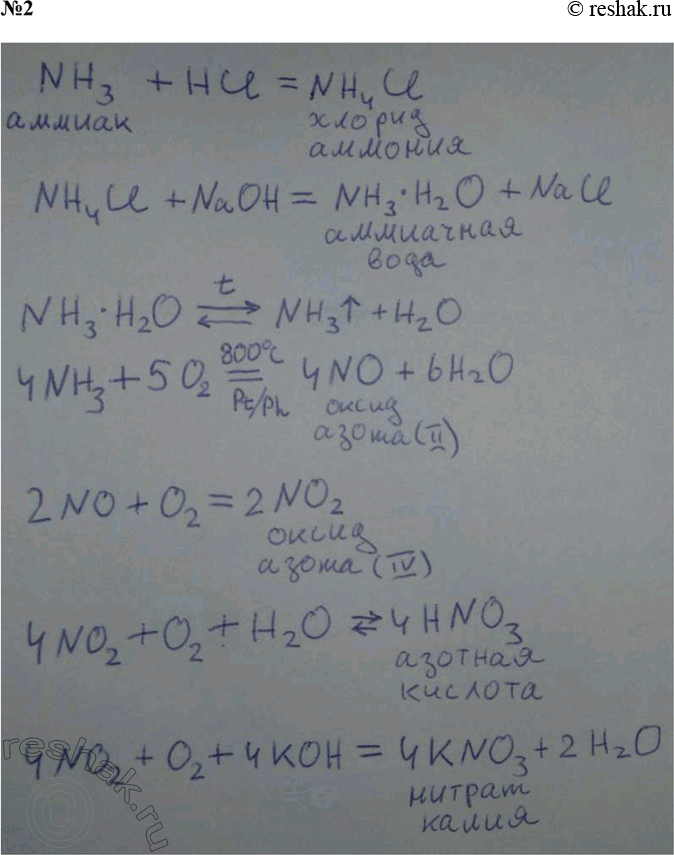 №2 © reshak.ru
NH₃ + HCl = NH₄Cl
аммиак хлорид
аммония
NH₄Cl + NaOH = NH₃·H₂O + NaCl
аммиачная
вода
t
NH₃·H₂O ⇄ NH₃↑ + H₂O
800°C
4NH₃ + 5O₂ = 4NO + 6H₂O
Pt/Ph оксид
азота (II)
2NO + O₂ = 2NO₂
оксид
азота (IV)
4NO₂ + O₂ + H₂O ⇄ 4HNO₃
азотная
кислота
4NO₂ + O₂ + 4KOH = 4KNO₃ + 2H₂O
нитрат
калия
reshak.ru
©